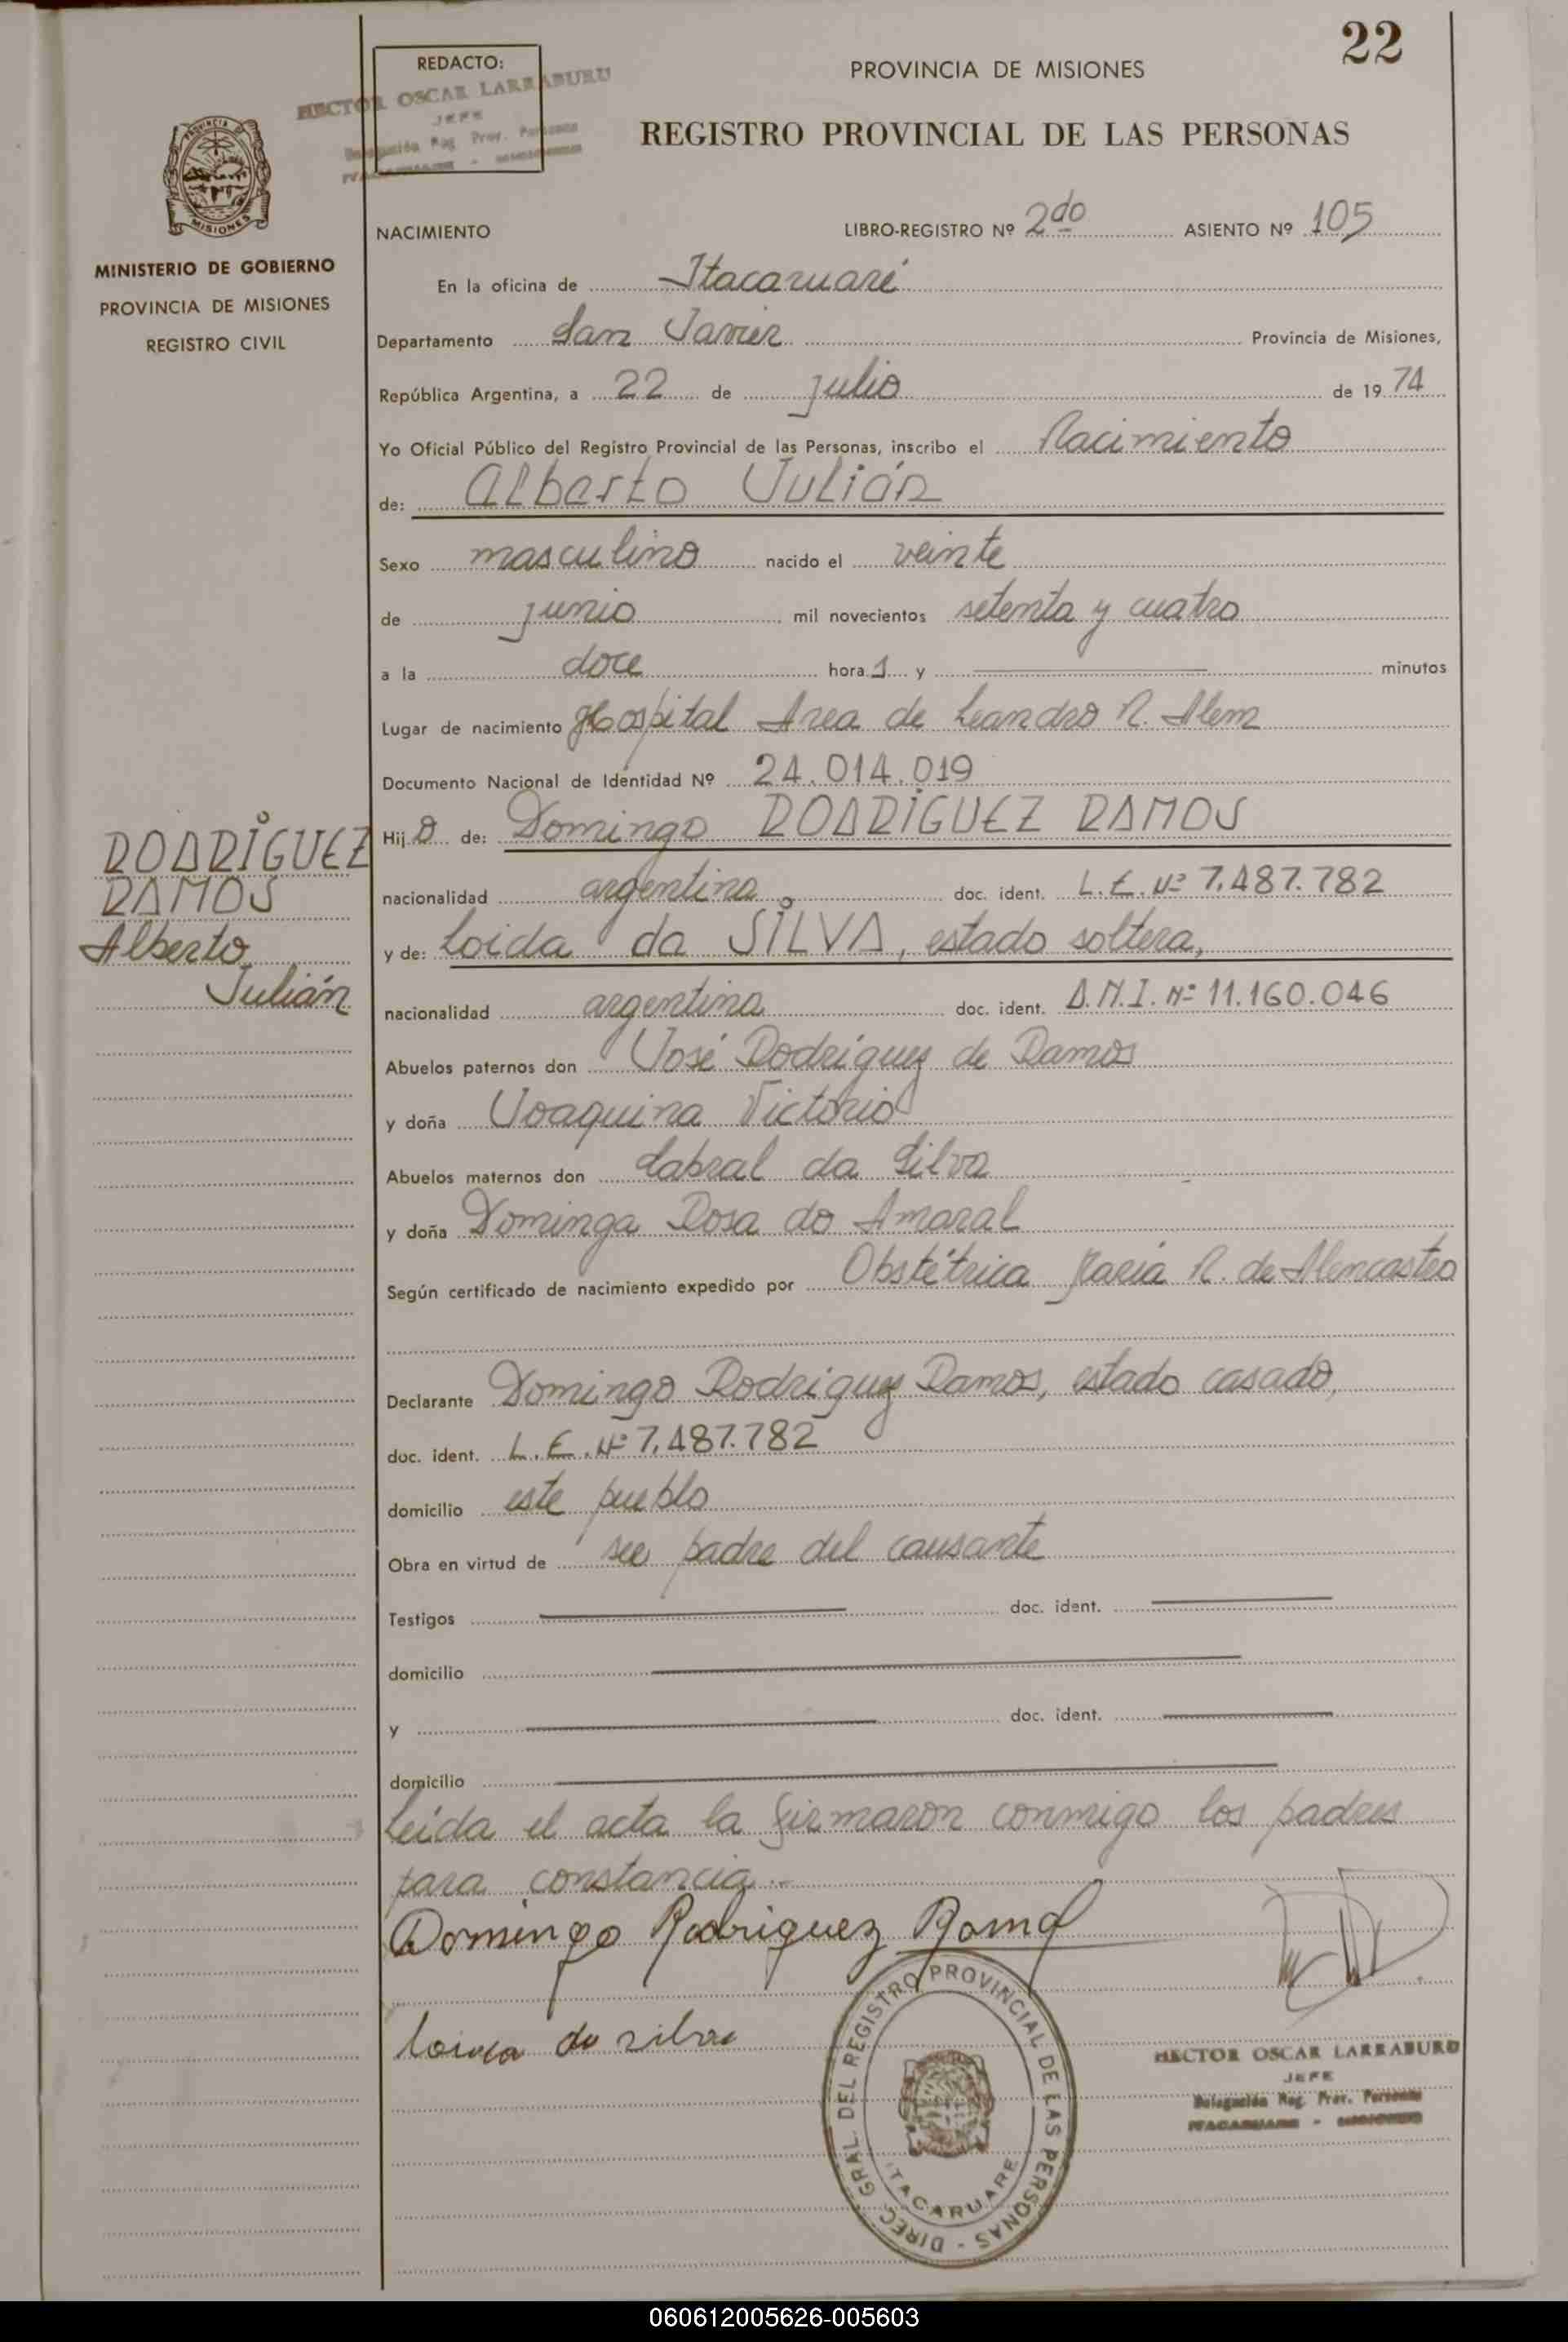 22
REDACTO:
HECTOR OSCAR LARRABURU
JEFE
Delegación Reg. Prov. Personas
PROVINCIA DE MISIONES
REGISTRO PROVINCIAL DE LAS PERSONAS
PROVINCIA DE
MISIONES
MINISTERIO DE GOBIERNO
PROVINCIA DE MISIONES
REGISTRO CIVIL
NACIMIENTO LIBRO-REGISTRO Nº 2do ASIENTO Nº 105
En la oficina de Itacaruaré
Departamento San Javier Provincia de Misiones,
República Argentina, a 22 de julio de 1974
Yo Oficial Público del Registro Provincial de las Personas, inscribo el Nacimiento
de: Alberto Julián
Sexo masculino nacido el veinte
de junio mil novecientos setenta y cuatro
a la doce hora s y minutos
Lugar de nacimiento Hospital Area de Leandro N. Alem
Documento Nacional de Identidad Nº 24.014.019
Hijo de: Domingo RODRÍGUEZ RAMOS
RODRÍGUEZ
RAMOS
Alberto
Julián
nacionalidad argentina doc. ident. L.E. Nº 7.487.782
y de: Loida da SILVA, estado soltera,
nacionalidad argentina doc. ident. D.N.I. Nº 11.160.046
Abuelos paternos don José Rodriguez de Ramos
y doña Joaquina Victorio
Abuelos maternos don Cabral da Silva
y doña Dominga Rosa do Amaral
Según certificado de nacimiento expedido por Obstétrica María R. de Alencastro
Declarante Domingo Rodriguez Ramos, estado casado,
doc. ident. L.E. Nº 7.487.782
domicilio este pueblo
Obra en virtud de ser padre del causante
Testigos doc. ident.
domicilio
y doc. ident.
domicilio
Leída el acta la firmaron conmigo los padres
para constancia.-
Domingo Rodriguez Ramo
Loida da silva
DIREC. GRAL. DEL REGISTRO PROVINCIAL DE LAS PERSONAS -
ITACARUARE
HECTOR OSCAR LARRABURU
JEFE
Delegación Reg. Prov. Personas
ITACARUARE - MISIONES
060612005626-005603